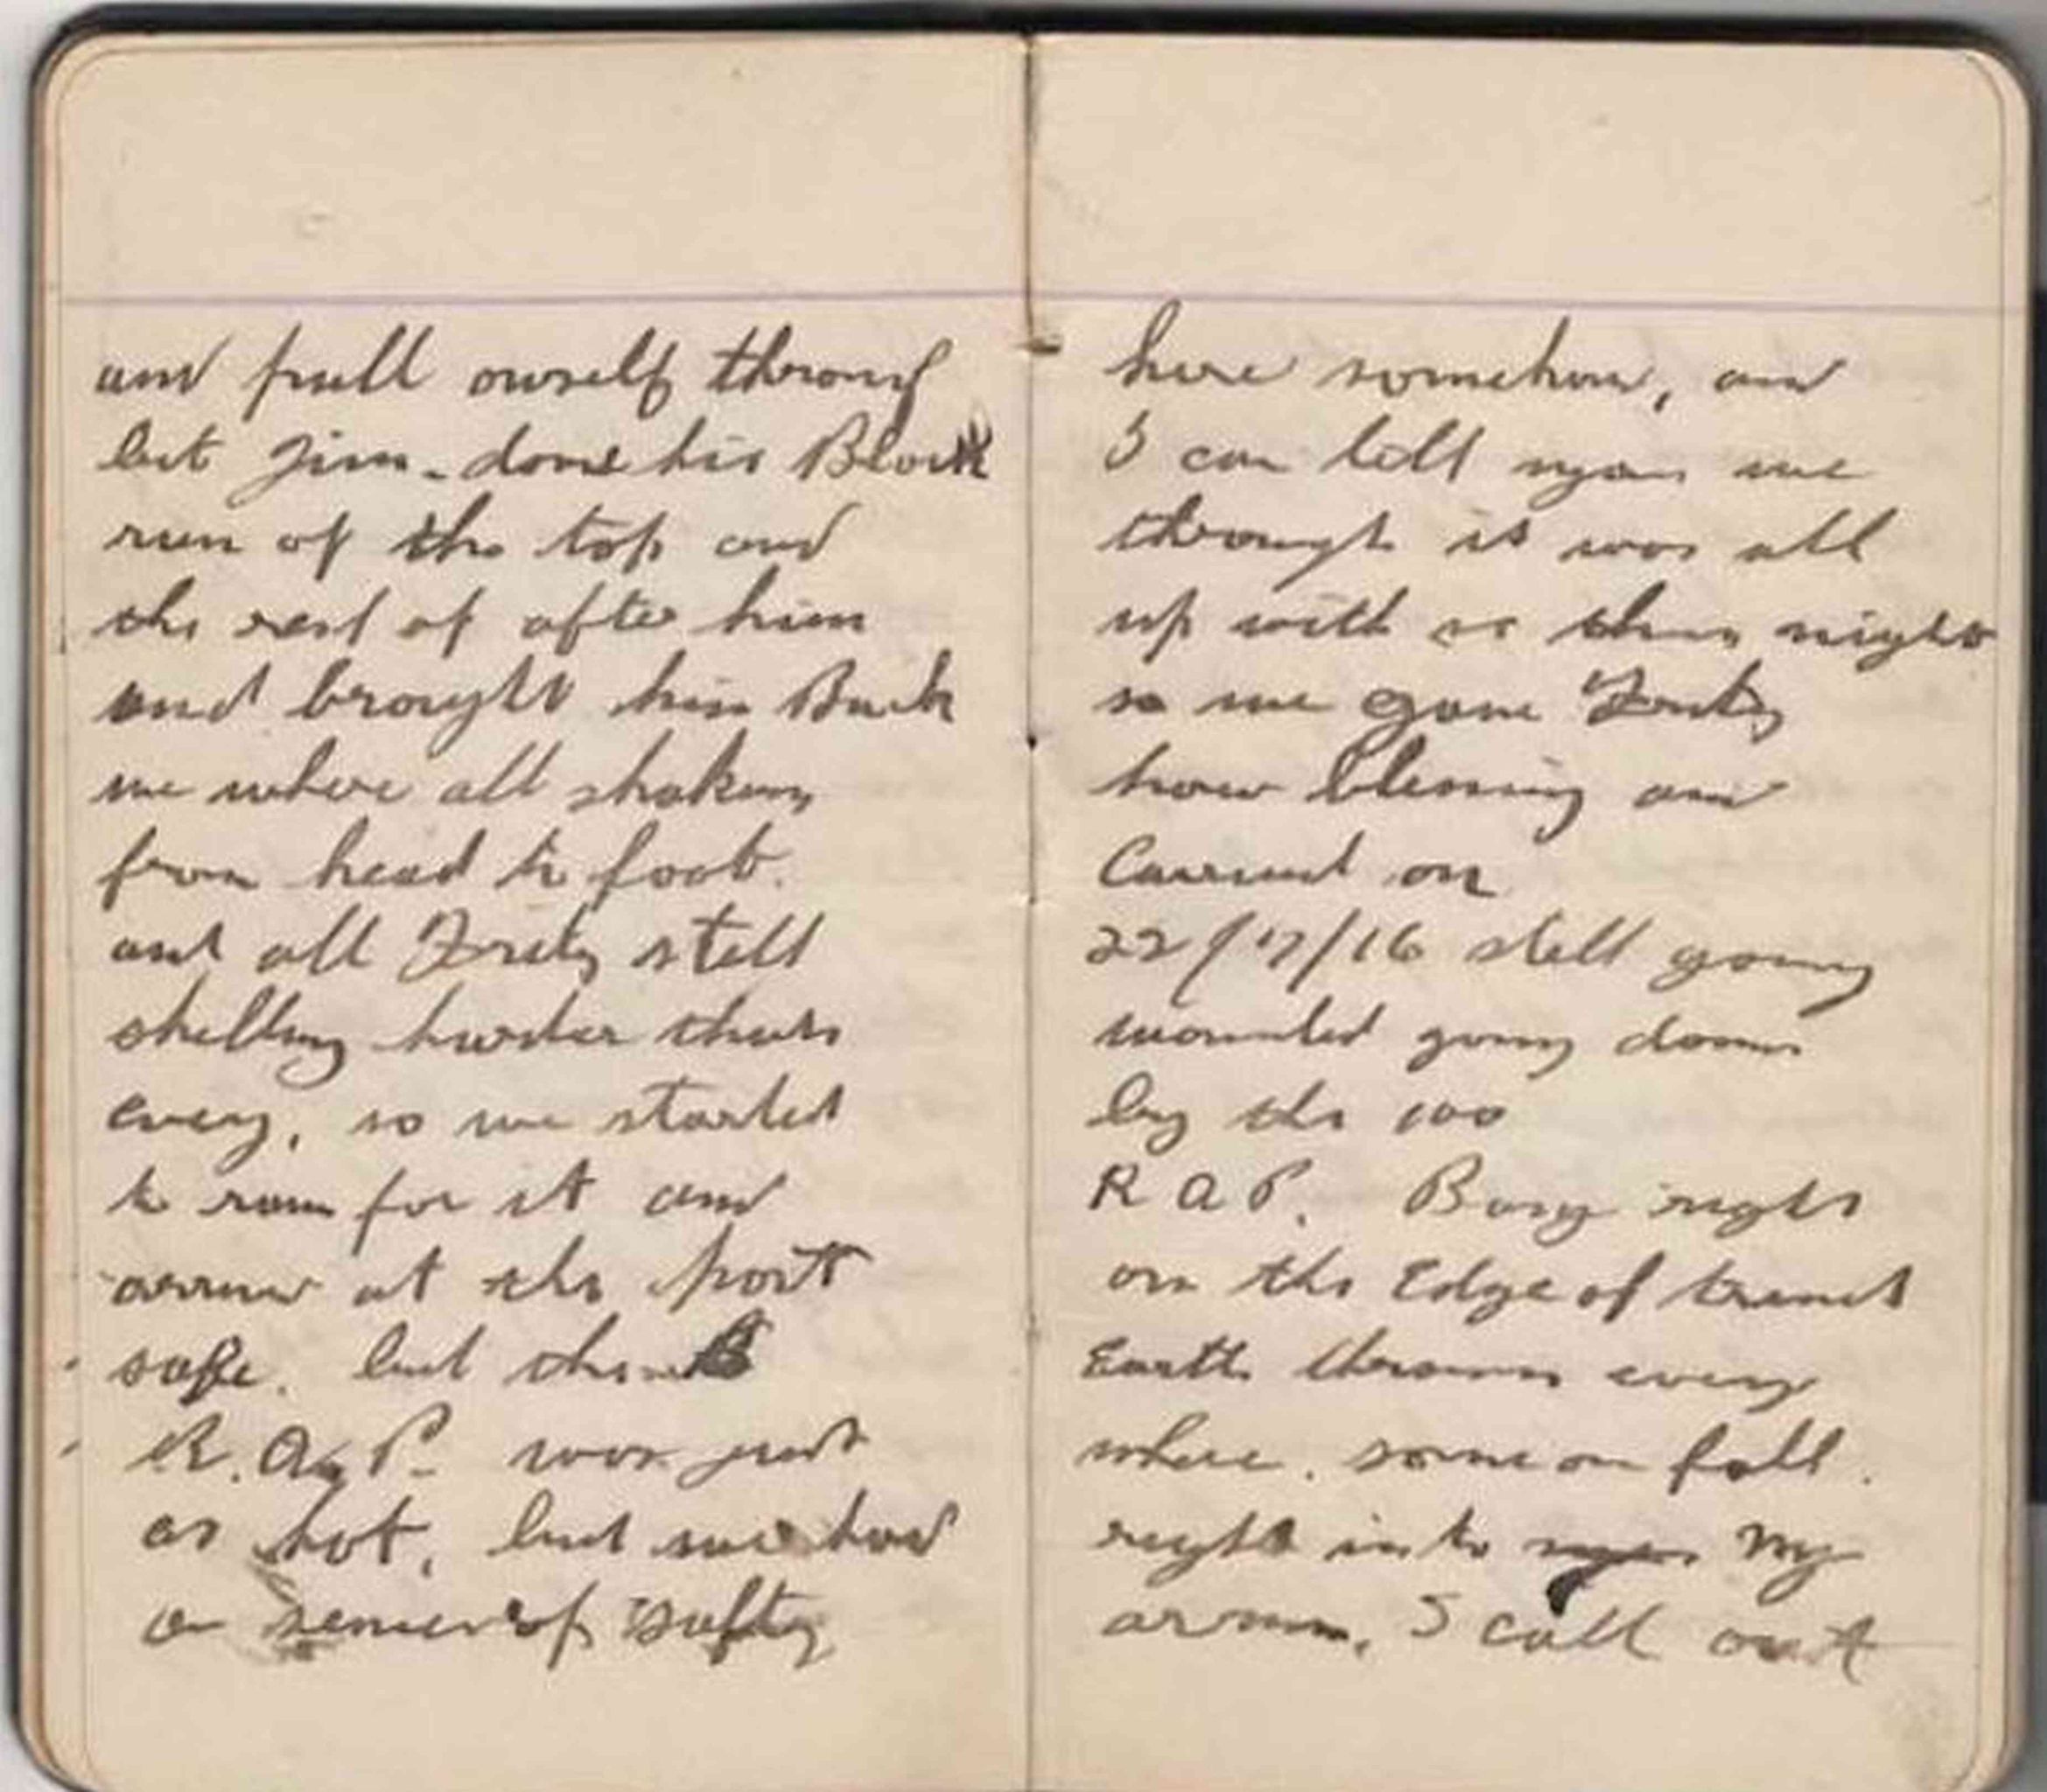 and pull ourself throug
but Jim done his Block
run of the top and
the rest of after him
and brought him Back
we where all shaking
from head to foot.
and all Fritz still
shelling harder than
every, so we started
to run for it and
arrive at the post
safe. but the
R.A.P. was just
as hot, but we had
a sence of safty
here somehow, and
I can tell you we
though it was all
up with us this night
so we gave Fritz
our blessing and
Carried on
22/7/16 still going
wounded going down
by the 100
R A P. Bang right
on the Edge of trench
Earth thrown every
where. some on fall.
right into my
arms, I call out